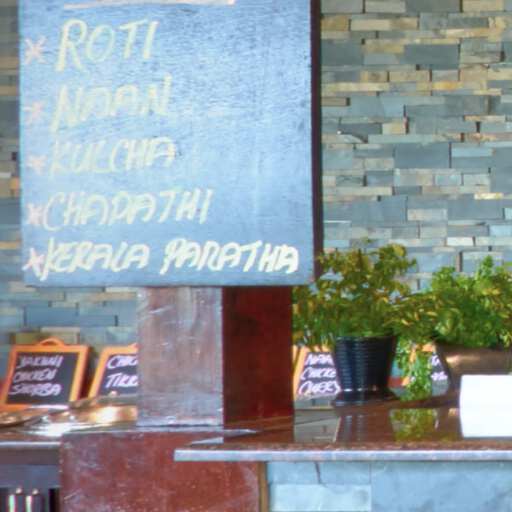 * ROTI
* NAAN
* KULCHA
* CHAPATHI
* KERALA PARATHA
YAKHNI
CHICKEN
SHORBA
NAA
CHICKE
CURRY